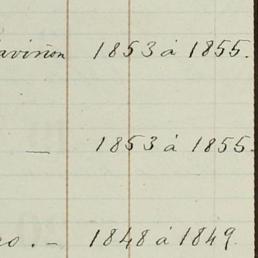 aviñon 1853 á 1855.
— 1853 á 1855.
o. - 1848 á 1849.